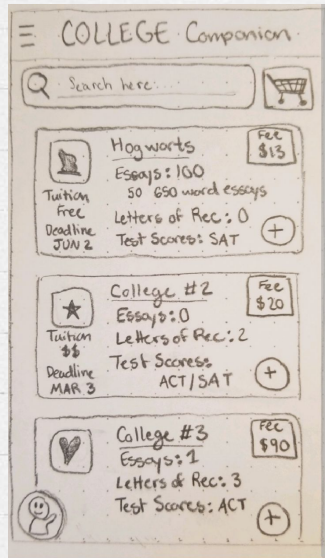 COLLEGE Companion
Search here:...
Hogworts
Fee
$13
Essays: 100
50 650 word essays
Letters of Rec: 0
Test Scores: SAT
Tuition
Free
Deadline
JUN 2
+
College #2
Fee
$20
Essays: 0
Letters of Rec: 2
Test Scores:
ACT/SAT
Tuition
$$
Deadline
MAR 3
+
College #3
Fee
$90
Essays: 1
Letters of Rec: 3
Test Scores: ACT
+